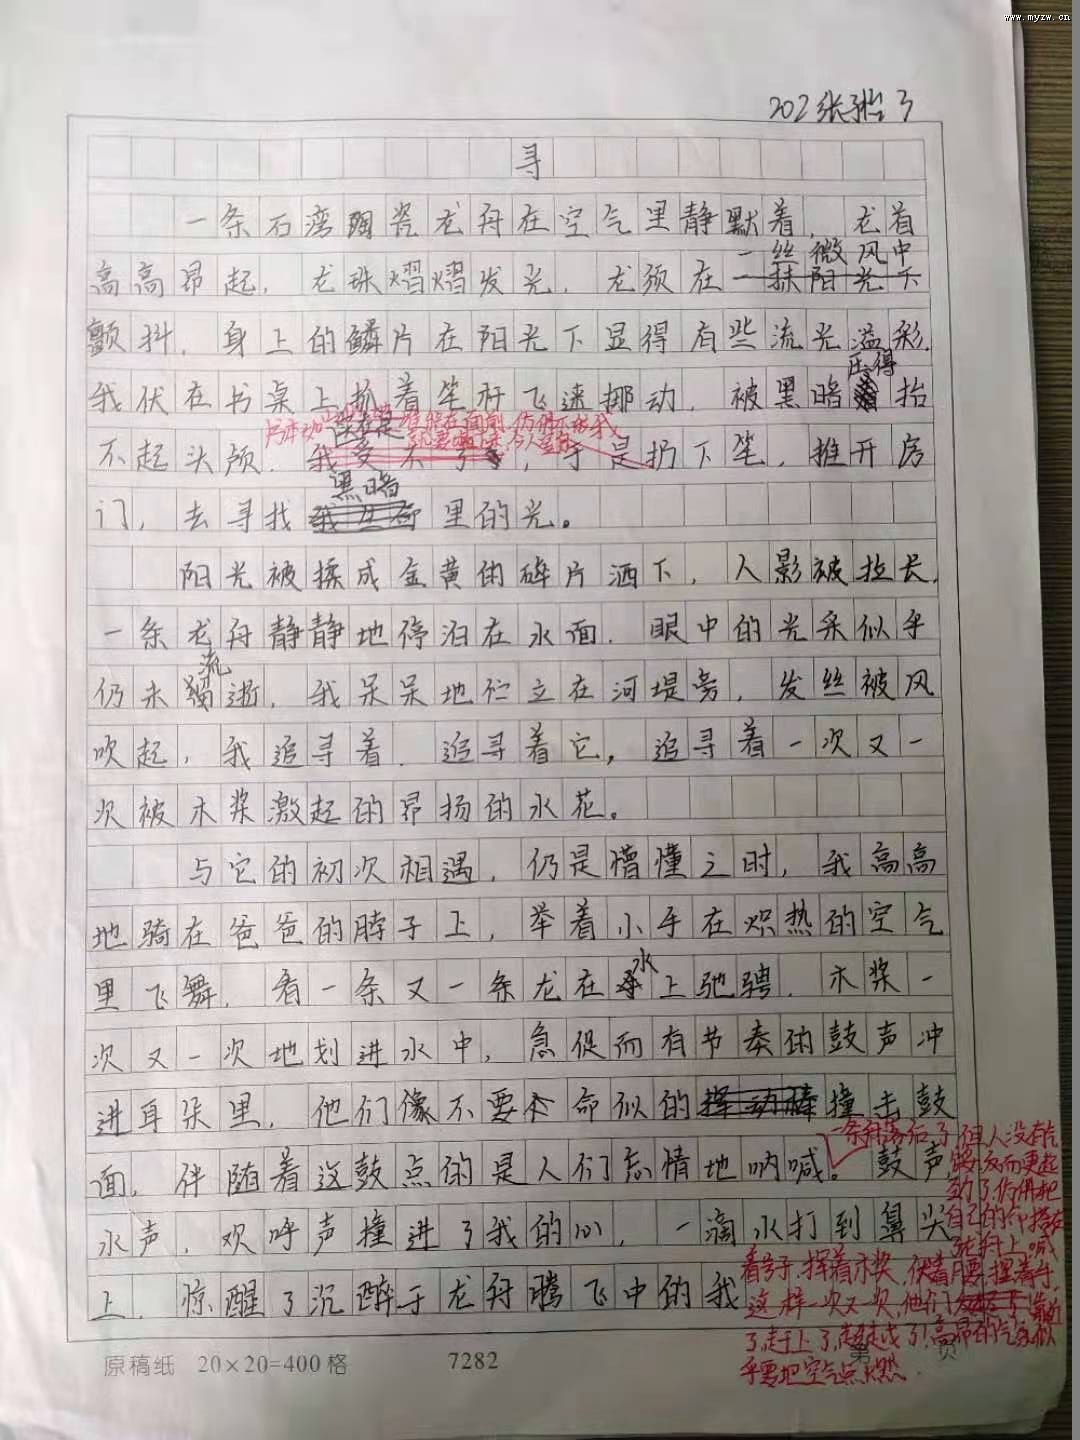 www.myzw.cn
202 张 3
寻
一条石湾陶瓷龙舟在空气里静默着，龙首
一丝微风中
高高昂起，龙珠熠熠发光，龙须在一抹阳光下
颤抖，身上的鳞片在阳光下显得有些流光溢彩，
压得
我伏在书桌上抓着笔杆飞速挪动，被黑暗抬
不起头颅，我受不了，于是扔下笔，推开房
黑暗
门，去寻找里的光。
阳光被揉成金黄的碎片洒下，人影被拉长，
一条龙舟静静地停泊在水面，眼中的光采似乎
流
仍未逝，我呆呆地伫立在河堤旁，发丝被风
吹起，我追寻着，追寻着它，追寻着一次又一
次被木桨激起的昂扬的水花。
与它的初次相遇，仍是懵懂之时，我高高
地骑在爸爸的脖子上，举着小手在炽热的空气
水
里飞舞，看一条又一条龙在上驰骋，木桨一
次又一次地划进水中，急促而有节奏的鼓声冲
进耳朵里，他们像不要命似的挥动棒撞击鼓
面，伴随着这鼓点的是人们忘情地呐喊。鼓声，
水声，欢呼声撞进了我的心，一滴水打到鼻尖
上，惊醒了沉醉于龙舟腾飞中的我
一条舟落后了，但人没有气
馁，反而更起
劲了，仿佛把
自己的命搭在
龙舟上，喊
着号子，挥着木桨，伏着腰，
这样一次又一次，他们
了，赶上了，超越了！高昂的气势似
乎要把空气点燃。
原稿纸 20×20=400格 7282 第 页